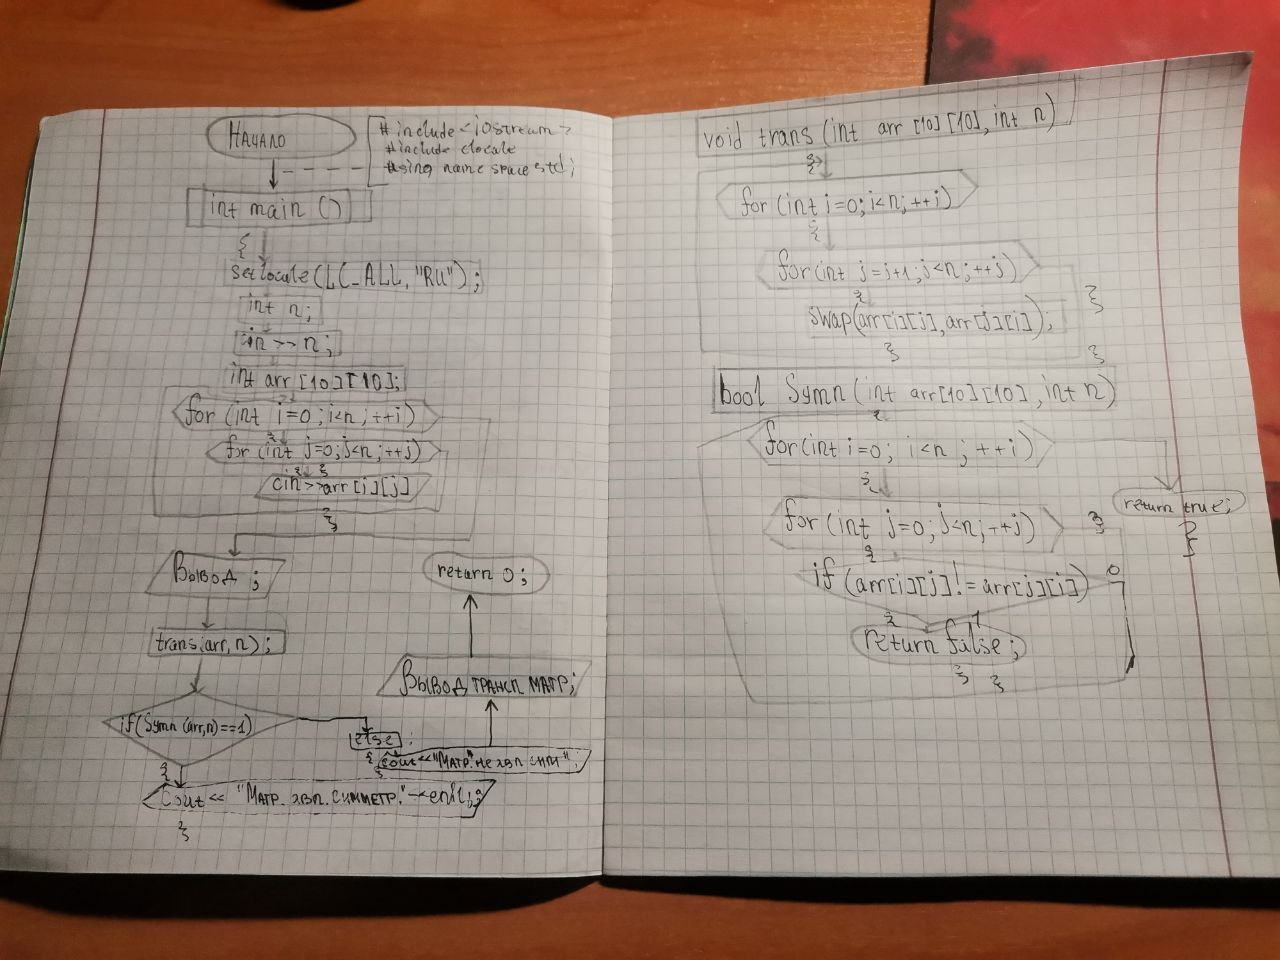 Начало
#include<iostream>
#include clocale
#using name space std;
int main ()
{
setlocale(LC_ALL, "RU");
int n;
cin >> n;
int arr [10][10];
for (int i=0; i<n; ++i)
{
for (int j=0; j<n; ++j)
{ }
cin>>arr[i][j]
}
Вывод ;
trans(arr, n);
if(Symn (arr,n)==1)
{
Cout << "Матр. явл. симметр." << endl;
}
else:
{ cout<<"Матр. не явл сим";
}
Вывод трансп матр;
return 0;
void trans (int arr [10][10], int n)
{
for (int i=0; i<n; ++i)
{
for(int j=j+1; j<n; ++j)
{
swap(arr[i][j], arr[j][i]);
}
}
}
bool Symn (int arr[10][10], int n)
{
for(int i=0; i<n ; ++i)
{
for (int j=0; j<n; ++j)
{
if (arr[i][j]!=arr[j][i])
0
1
{
return false;
}
}
}
return true;
}